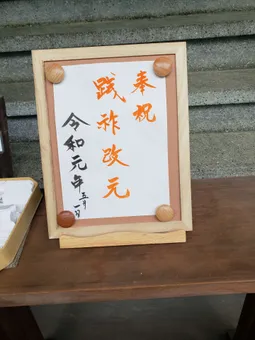 奉祝
践祚改元
令和元年五月一日